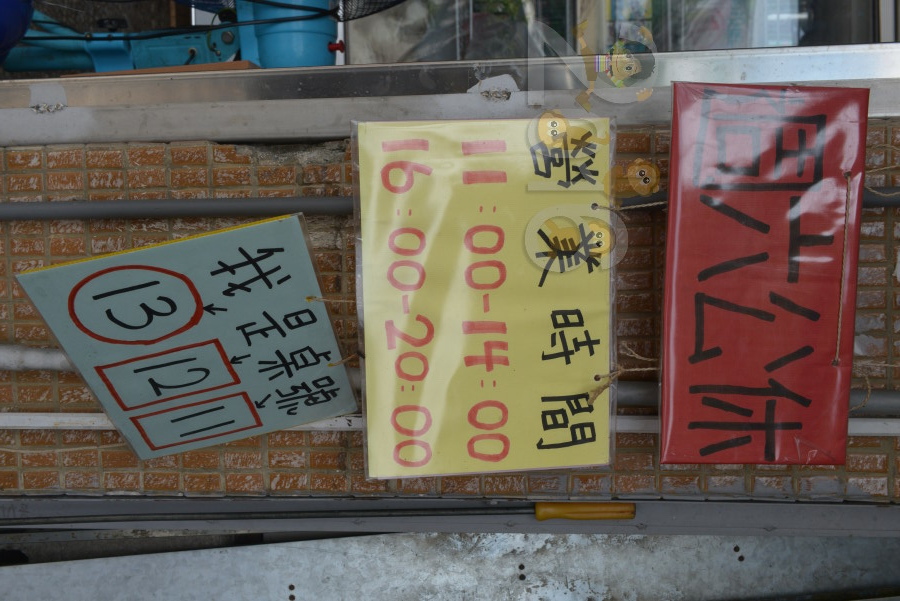 周六公休
營業時間
11:00-14:00
16:00-20:00
我是桌號
13 12 11